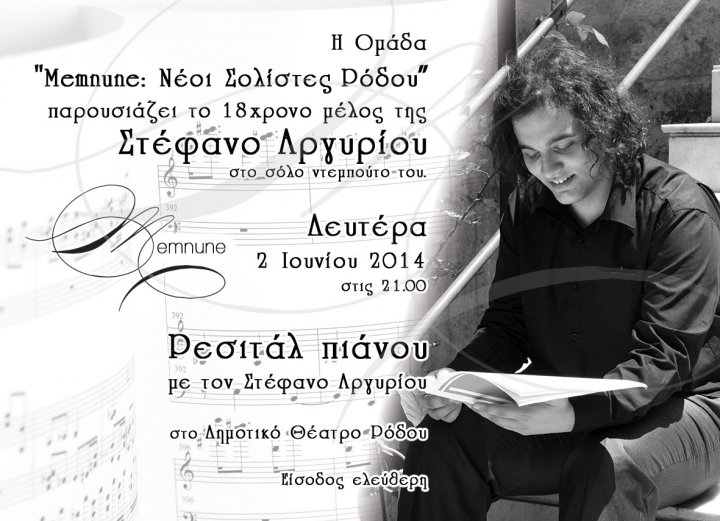 Η Ομάδα
"Memnune: Νέοι Σολίστες Ρόδου"
παρουσιάζει το 18χρονο μέλος της
Στέφανο Αργυρίου
στο σόλο ντεμπούτο του.
Memnune
Δευτέρα
2 Ιουνίου 2014
στις 21.00
Ρεσιτάλ πιάνου
με τον Στέφανο Αργυρίου
στο Δημοτικό Θέατρο Ρόδου
Είσοδος ελεύθερη
392
392
396
396